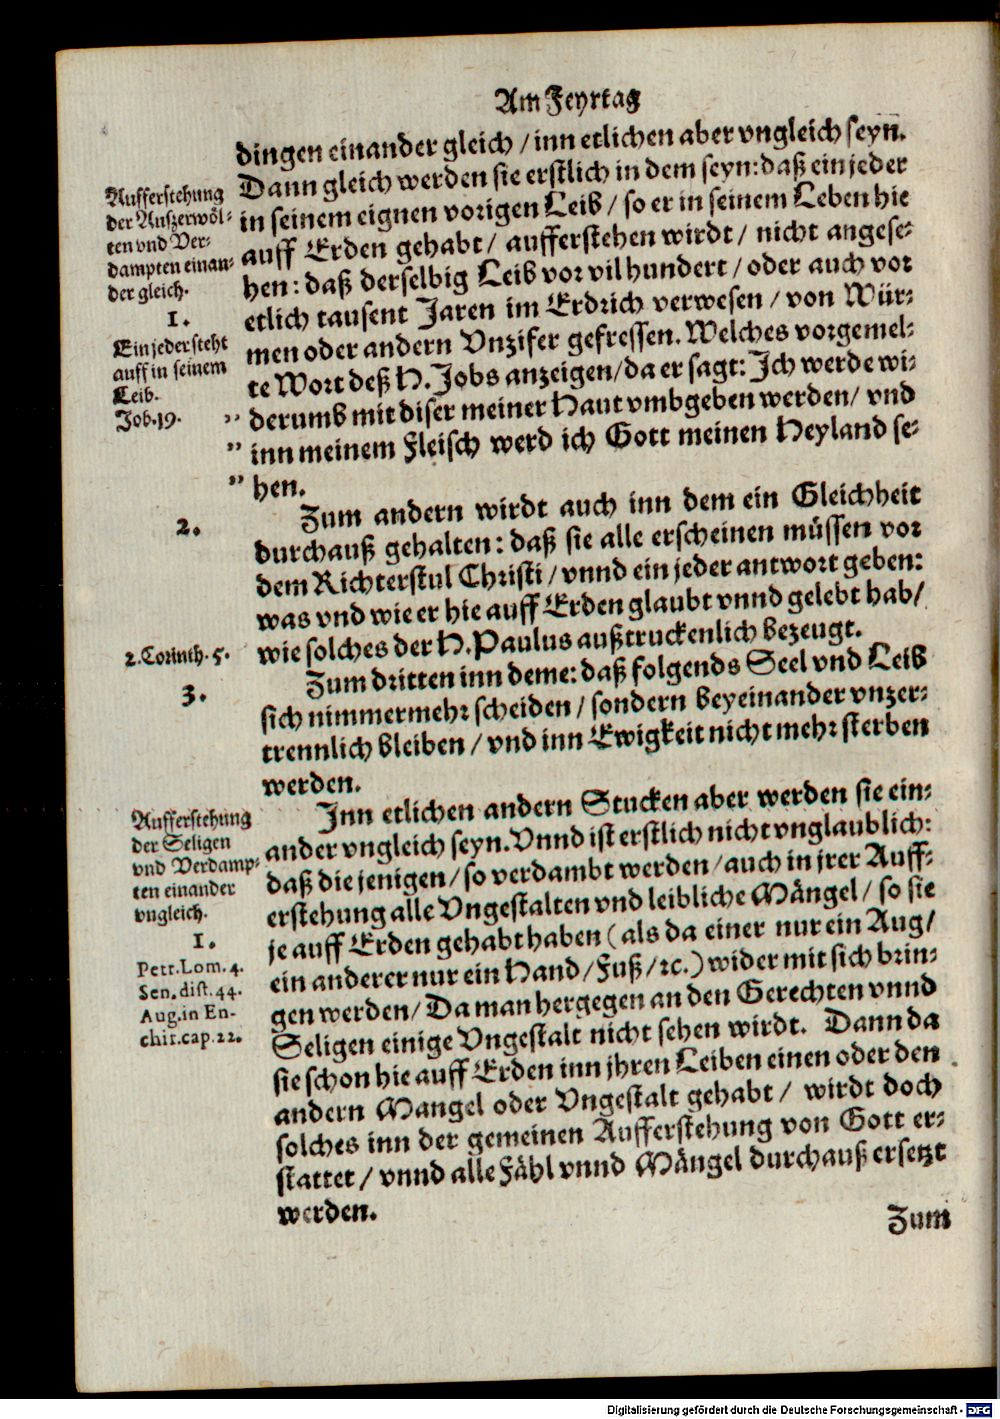 Am Feyrtag
dingen einander gleich / inn etlichen aber vngleich seyn.
Dann gleich werden sie erstlich in dem seyn: daß ein jeder
in seinem eignen vorigen Leib / so er in seinem Leben hie
auff Erden gehabt / aufferstehen wirdt / nicht angese-
hen: daß derselbig Leib vor vil hundert / oder auch vor
etlich tausent Jaren im Erdrich verwesen / von Wür-
men oder andern Vnzifer gefressen. Welches vorgemel-
te Wort deß H. Jobs anzeigen / da er sagt: Ich werde wi-
" derumb mit diser meiner Haut vmbgeben werden / vnd
" inn meinem Fleisch werd ich Gott meinen Heyland se-
" hen.
Zum andern wirdt auch inn dem ein Gleichheit
durchauß gehalten: daß sie alle erscheinen müssen vor
dem Richterstul Christi / vnnd ein jeder antwort geben:
was vnd wie er hie auff Erden glaubt vnnd gelebt hab /
wie solches der H. Paulus außtruckenlich bezeugt.
Zum dritten inn deme: daß folgends Seel vnd Leib
sich nimmermehr scheiden / sondern beyeinander vnzer-
trennlich bleiben / vnd inn Ewigkeit nicht mehr sterben
werden.
Inn etlichen andern Stucken aber werden sie ein-
ander vngleich seyn. Vnnd ist erstlich nicht vnglaublich:
daß die jenigen / so verdambt werden / auch in jrer Auff-
erstehung alle Vngestalten vnd leibliche Mängel / so sie
je auff Erden gehabt haben (als da einer nur ein Aug /
ein anderer nur ein Hand / Fuß / ꝛc.) wider mit sich brin-
gen werden / Da man hergegen an den Gerechten vnnd
Seligen einige Vngestalt nicht sehen wirdt. Dann da
sie schon hie auff Erden inn jhren Leiben einen oder den
andern Mangel oder Vngestalt gehabt / wirdt doch
solches inn der gemeinen Aufferstehung von Gott er-
stattet / vnnd alle Fähl vnnd Mängel durchauß ersetzt
werden.
Zum
Aufferstehung
der Auszerwöl-
ten vnd Ver-
dampten einan-
der gleich.
1.
Ein jeder steht
auff in seinem
Leib.
Job. 19.
2.
2. Corinth. 5.
3.
Aufferstehung
der Seligen
vnd Verdamp-
ten einander
vngleich.
1.
Petr. Lom. 4.
Sen. dist. 44.
Aug. in En-
chir. cap. 22.
Digitalisierung gefördert durch die Deutsche Forschungsgemeinschaft - DFG